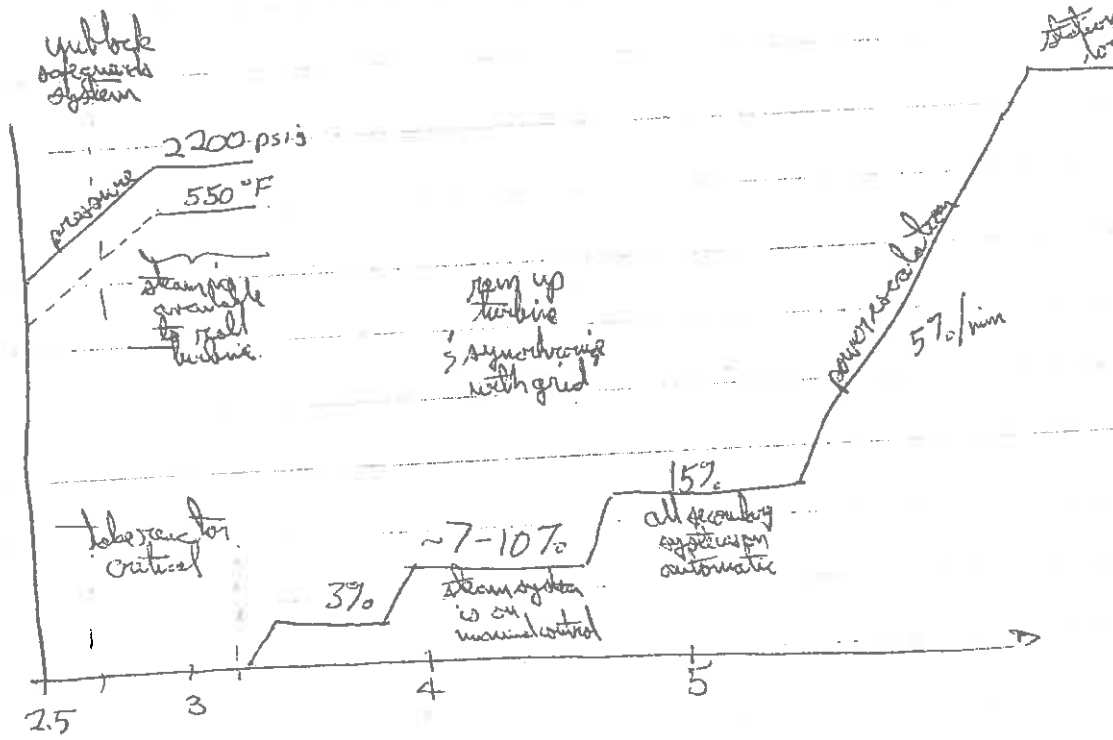 unblock
safeguards
system
2200 psig
pressure
550°F
steam is
available
to roll
turbine.
rpm up
turbine
& synchronize
with grid
power escalation
5%/min
take reactor
critical
3%
~7-10%
steam system
is on
manual control
15%
all secondary
systems on
automatic
2.5
3
4
5